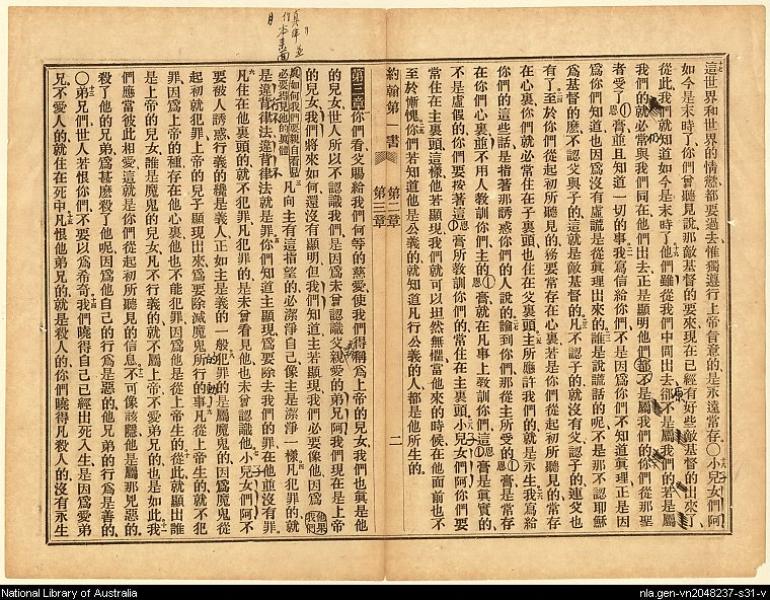 這世界和世界的情慾都要過去、惟獨遵行上帝旨意的、是永遠常存○小兒女們阿、
如今是末時了、你們曾聽見說、那敵基督的要來、現在已經有好些敵基督的出來了、
從此我們就知道如今是末時了、他們雖從我們中間出去、卻不是屬我們的、若是屬
我們的、就必常與我們同在、他們出去、正是顯明他們都不是屬我們的、你們從那聖
者受了恩膏、並且知道一切的事、我寫信給你們、不是因爲你們不知道眞理、正是因
爲你們知道、也因爲沒有虛謊是從眞理出來的、誰是說謊話的呢、不是那不認耶穌
爲基督的麽、不認父與子的、這就是敵基督的、凡不認子的、就沒有父、認子的、連父也
有了、至於你們從起初所聽見的、務要常存在心裏、若是你們從起初所聽見的常存
在心裏、你們就必常住在子裏頭、也住在父裏頭、主所應許我們的、就是永生、我寫給
你們的這些話、是指著那誘惑你們的人說的、論到你們、那從主所受的恩膏、是常存
在你們心裏、並不用人教訓你們、主的恩膏就在凡事上教訓你們、這恩膏是眞實的、
不是虛假的、你們要按著這恩膏所教訓你們的、常住在主裏頭、小兒女們阿、你們要
常住在主裏頭、這樣、他若顯現、我們就可以坦然無懼、當他來的時候、在他面前也不
至於慚愧、你們若知道他是公義的、就知道凡行公義的人、都是他所生的、
約翰第一書　第二章　第三章　二
第三章你們看父賜給我們何等的慈愛、使我們得稱爲上帝的兒女、我們也眞是他
的兒女、世人所以不認識我們、是因爲未曾認識父、親愛的弟兄阿、我們現在是上帝
的兒女、我們將來如何、還沒有顯明、但我們知道主若顯現、我們必要像他、因爲
必要得見他的眞體、凡向主有這指望的、必潔淨自己、像主是潔淨一樣、凡犯罪的、就
是違背律法、違背律法就是罪、你們知道主顯現、爲要除去我們的罪、在他並沒有罪、
凡住在他裏頭的、就不犯罪、凡犯罪的、是未曾看見他、也未曾認識他、小兒女們阿、不
要被人誘惑、行義的纔是義人、正如主是義的一般、犯罪的是屬魔鬼的、因爲魔鬼從
起初就犯罪、上帝的兒子顯現出來、爲要除滅魔鬼所行的事、凡從上帝生的、就不犯
罪、因爲上帝的種存在他心裏、他也不能犯罪、因爲他是從上帝生的、從此就顯出誰
是上帝的兒女、誰是魔鬼的兒女、凡不行義的、就不屬上帝、不愛弟兄的、也是如此、我
們應當彼此相愛、這就是你們從起初所聽見的信息、不可像該隱、他是屬那惡的、
殺了他的弟兄、爲甚麽殺了他呢、因爲他自己的行爲是惡的、他兄弟的行爲是善的、
○弟兄們、世人若恨你們、不要以爲希奇、我們曉得自己已經出死入生、是因爲愛弟
兄、不愛人的、就住在死中、凡恨他弟兄的、就是殺人的、你們曉得凡殺人的、沒有永生
National Library of Australia
nla.gen-vn2048237-s31-v